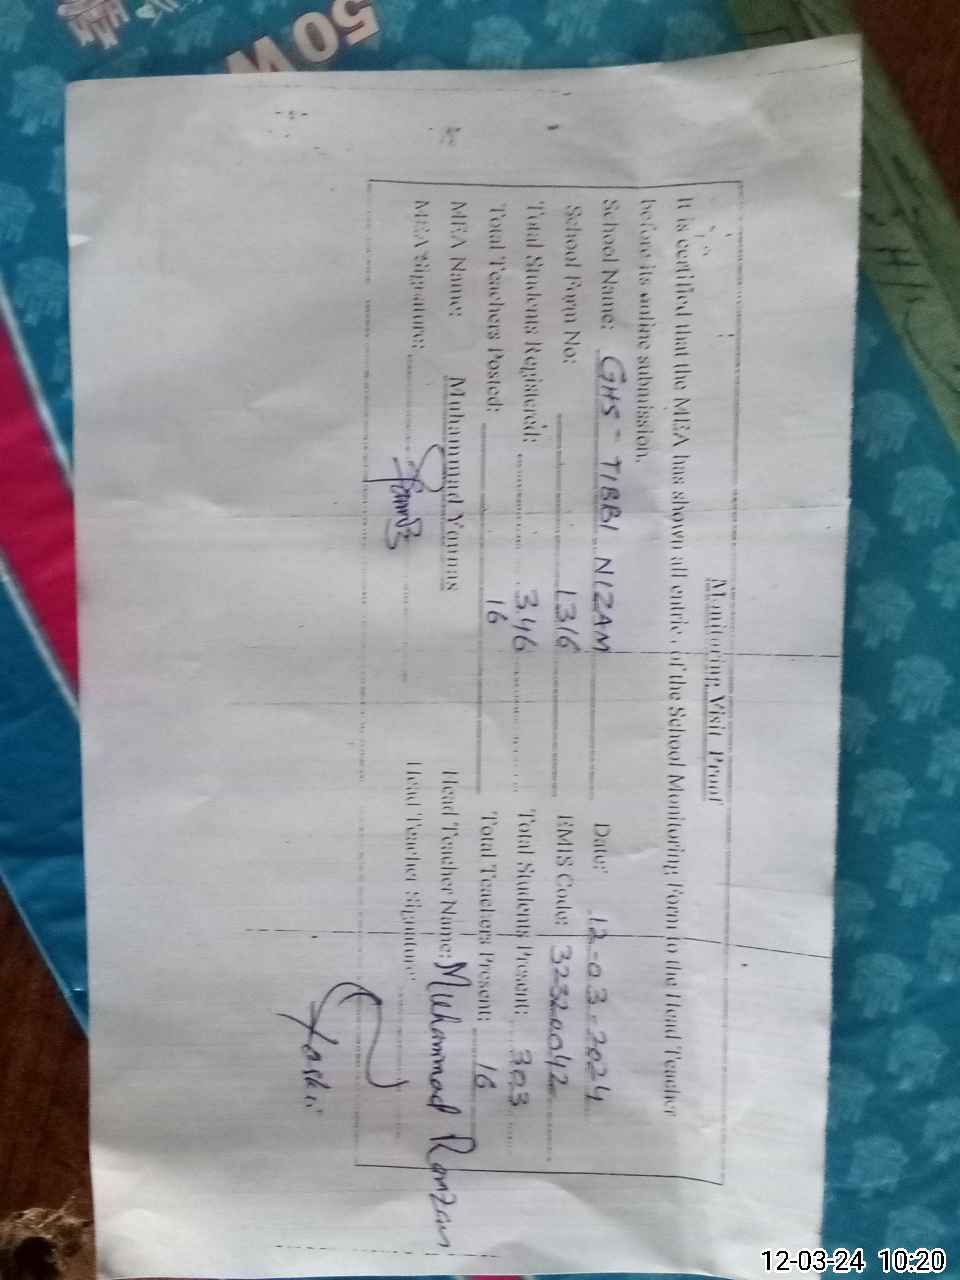 50W
Monitoring Visit Proof
It is certified that the MEA has shown all entries of the School Monitoring Form to the Head Teacher
before its online submission.
School Name: GHS - TIBBI NIZAM Date: 12-03-2024
School Form No: 1316 EMIS Code: 32320042
Total Students Registered: 346 Total Students Present: 303
Total Teachers Posted: 16 Total Teachers Present: 16
MEA Name: Muhammad Younas Head Teacher Name: Muhammad Ramzan
MEA Signature: Head Teacher Signature
12-03-24 10:20